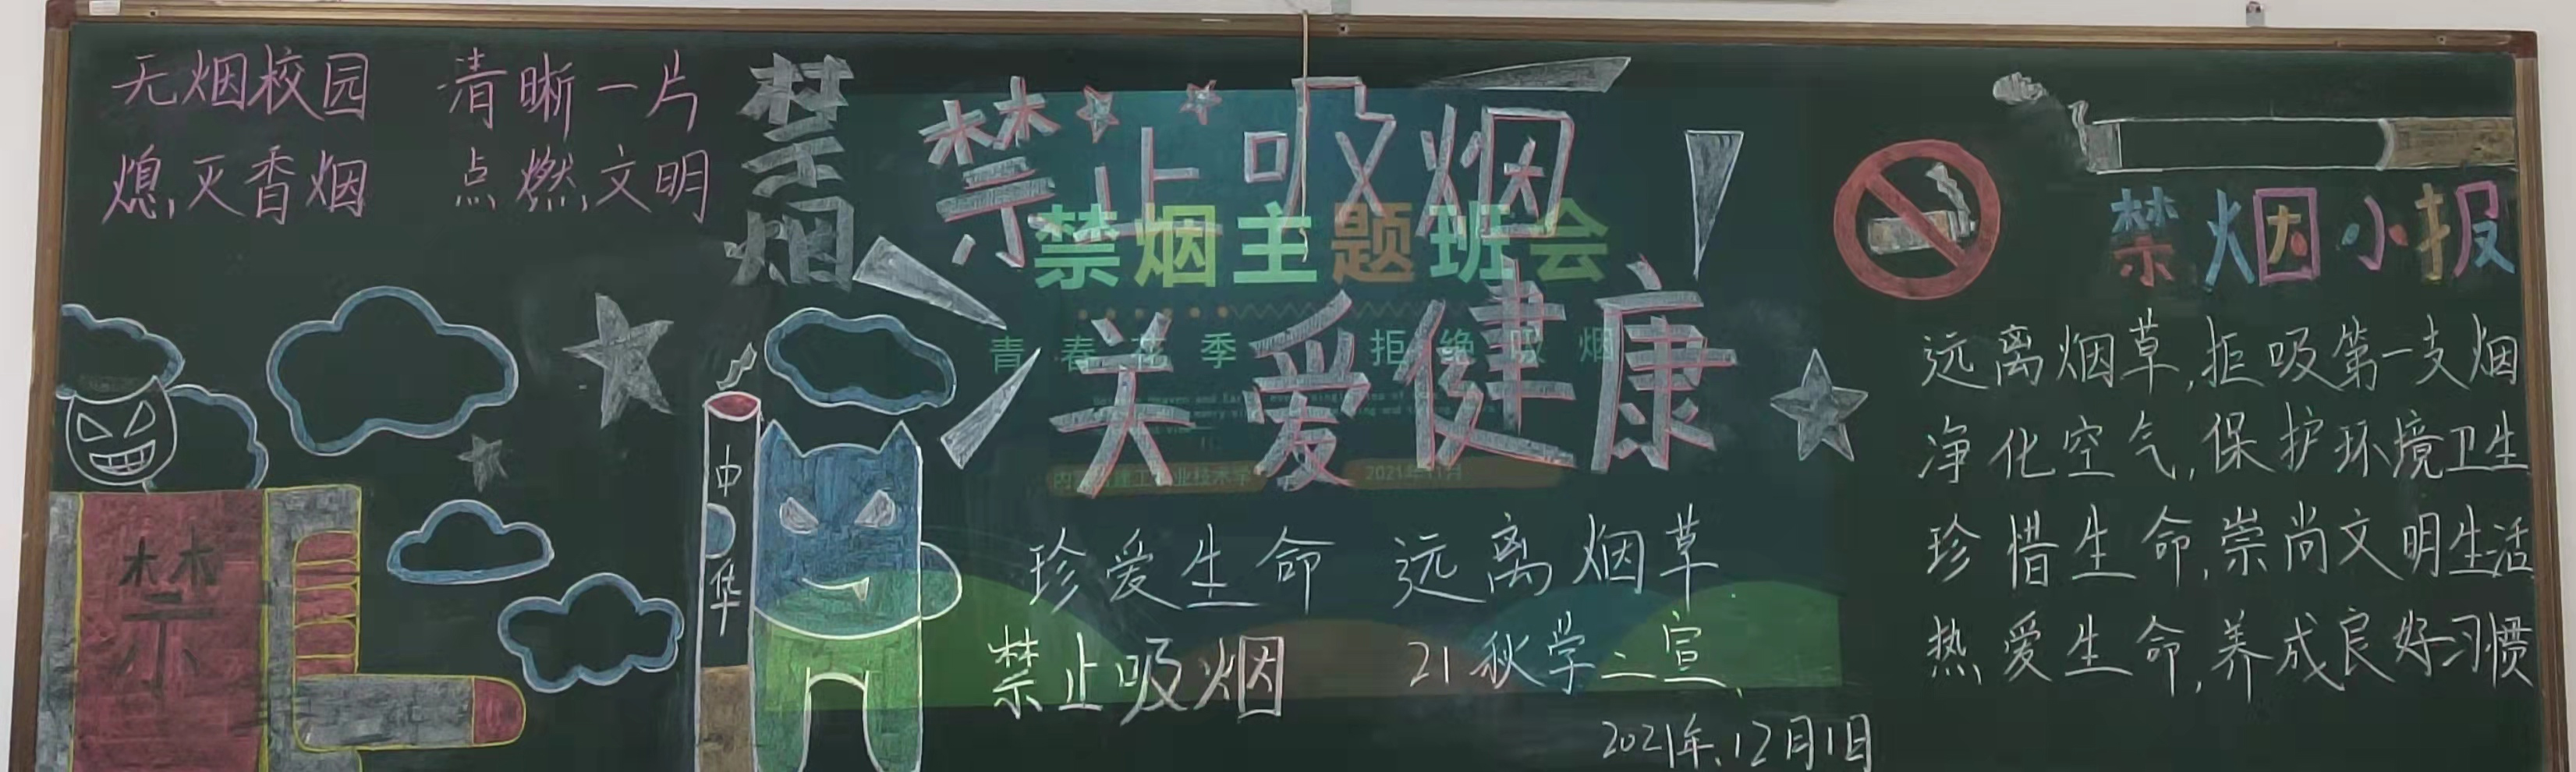 无烟校园 清晰一片
熄灭香烟 点燃文明
禁烟
禁止吸烟
关爱健康
禁烟主题班会
青春花季 拒绝吸烟
2021年11月
珍爱生命 远离烟草
禁止吸烟 21秋学二宣
2021年12月1日
中华
禁
禁烟小报
远离烟草,拒吸第一支烟
净化空气,保护环境卫生
珍惜生命,崇尚文明生活
热爱生命,养成良好习惯